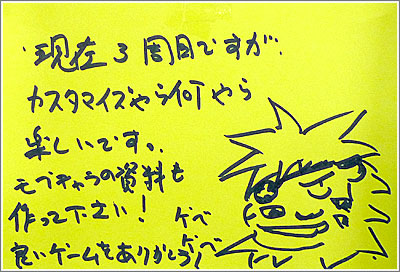 現在3周目ですが、
カスタマイズやら何やら
楽しいです。
モブキャラの資料も
作って下さい!
良いゲームをありがとう!
ゲベ
ゲベ